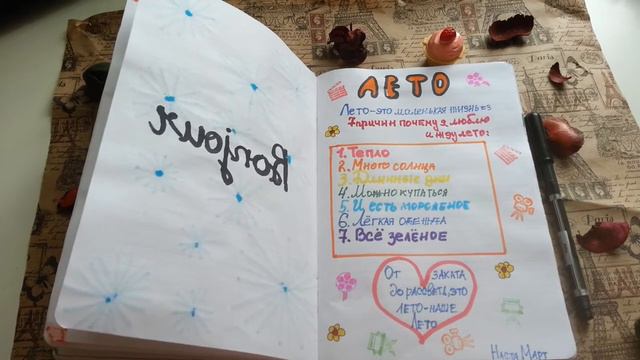 Bonjour
ЛЕТО
Лето-это маленькая жизнь<3
7 причин почему я люблю
и жду лето:
1. Тепло
2. Много солнца
3. Длинные дни
4. Можно купаться
5. И есть мороженое
6. Лёгкая одежда
7. Всё зелёное
От заката
до рассвета, это
лето-наше
лето
Настя Март
Paris
Paris